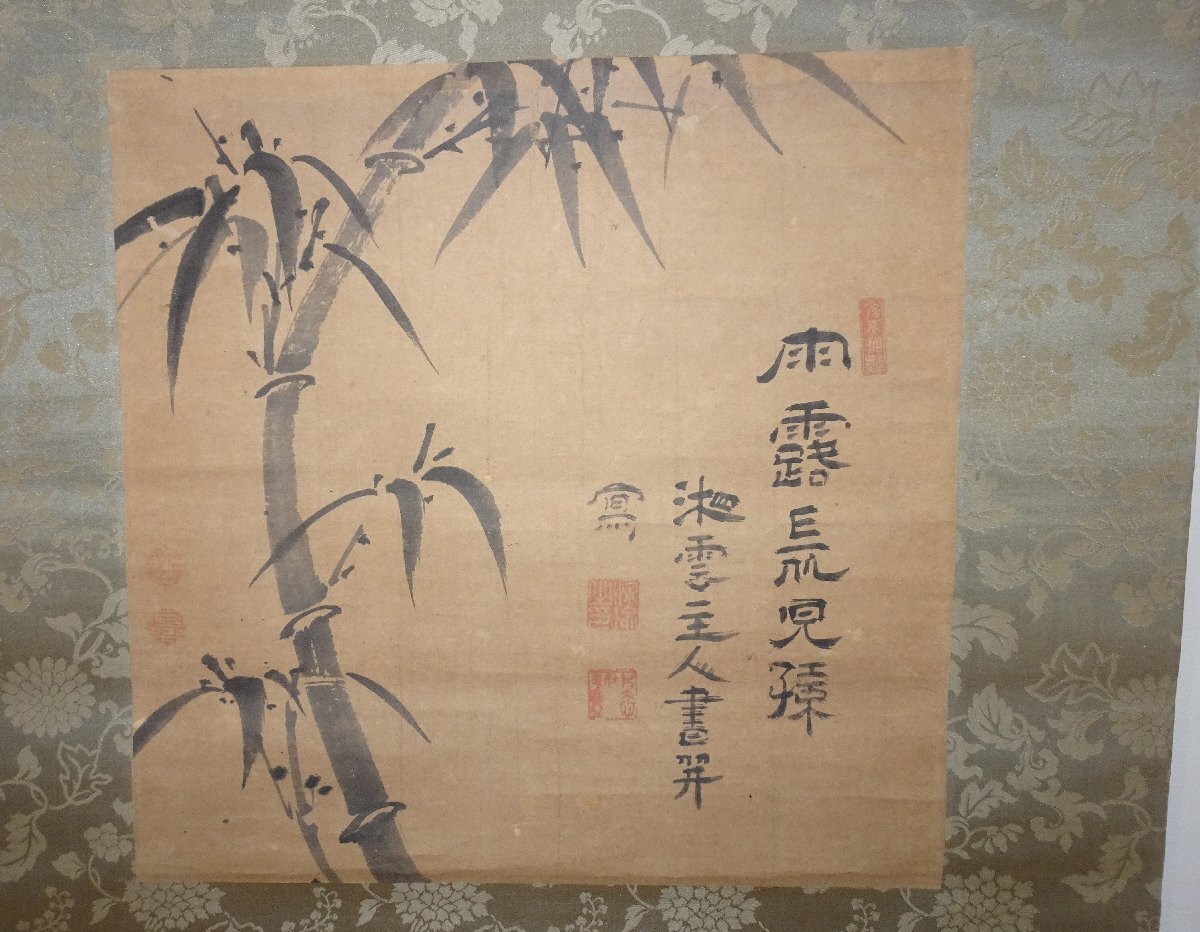 雨露長兒孫
湘雲主人書并
寫